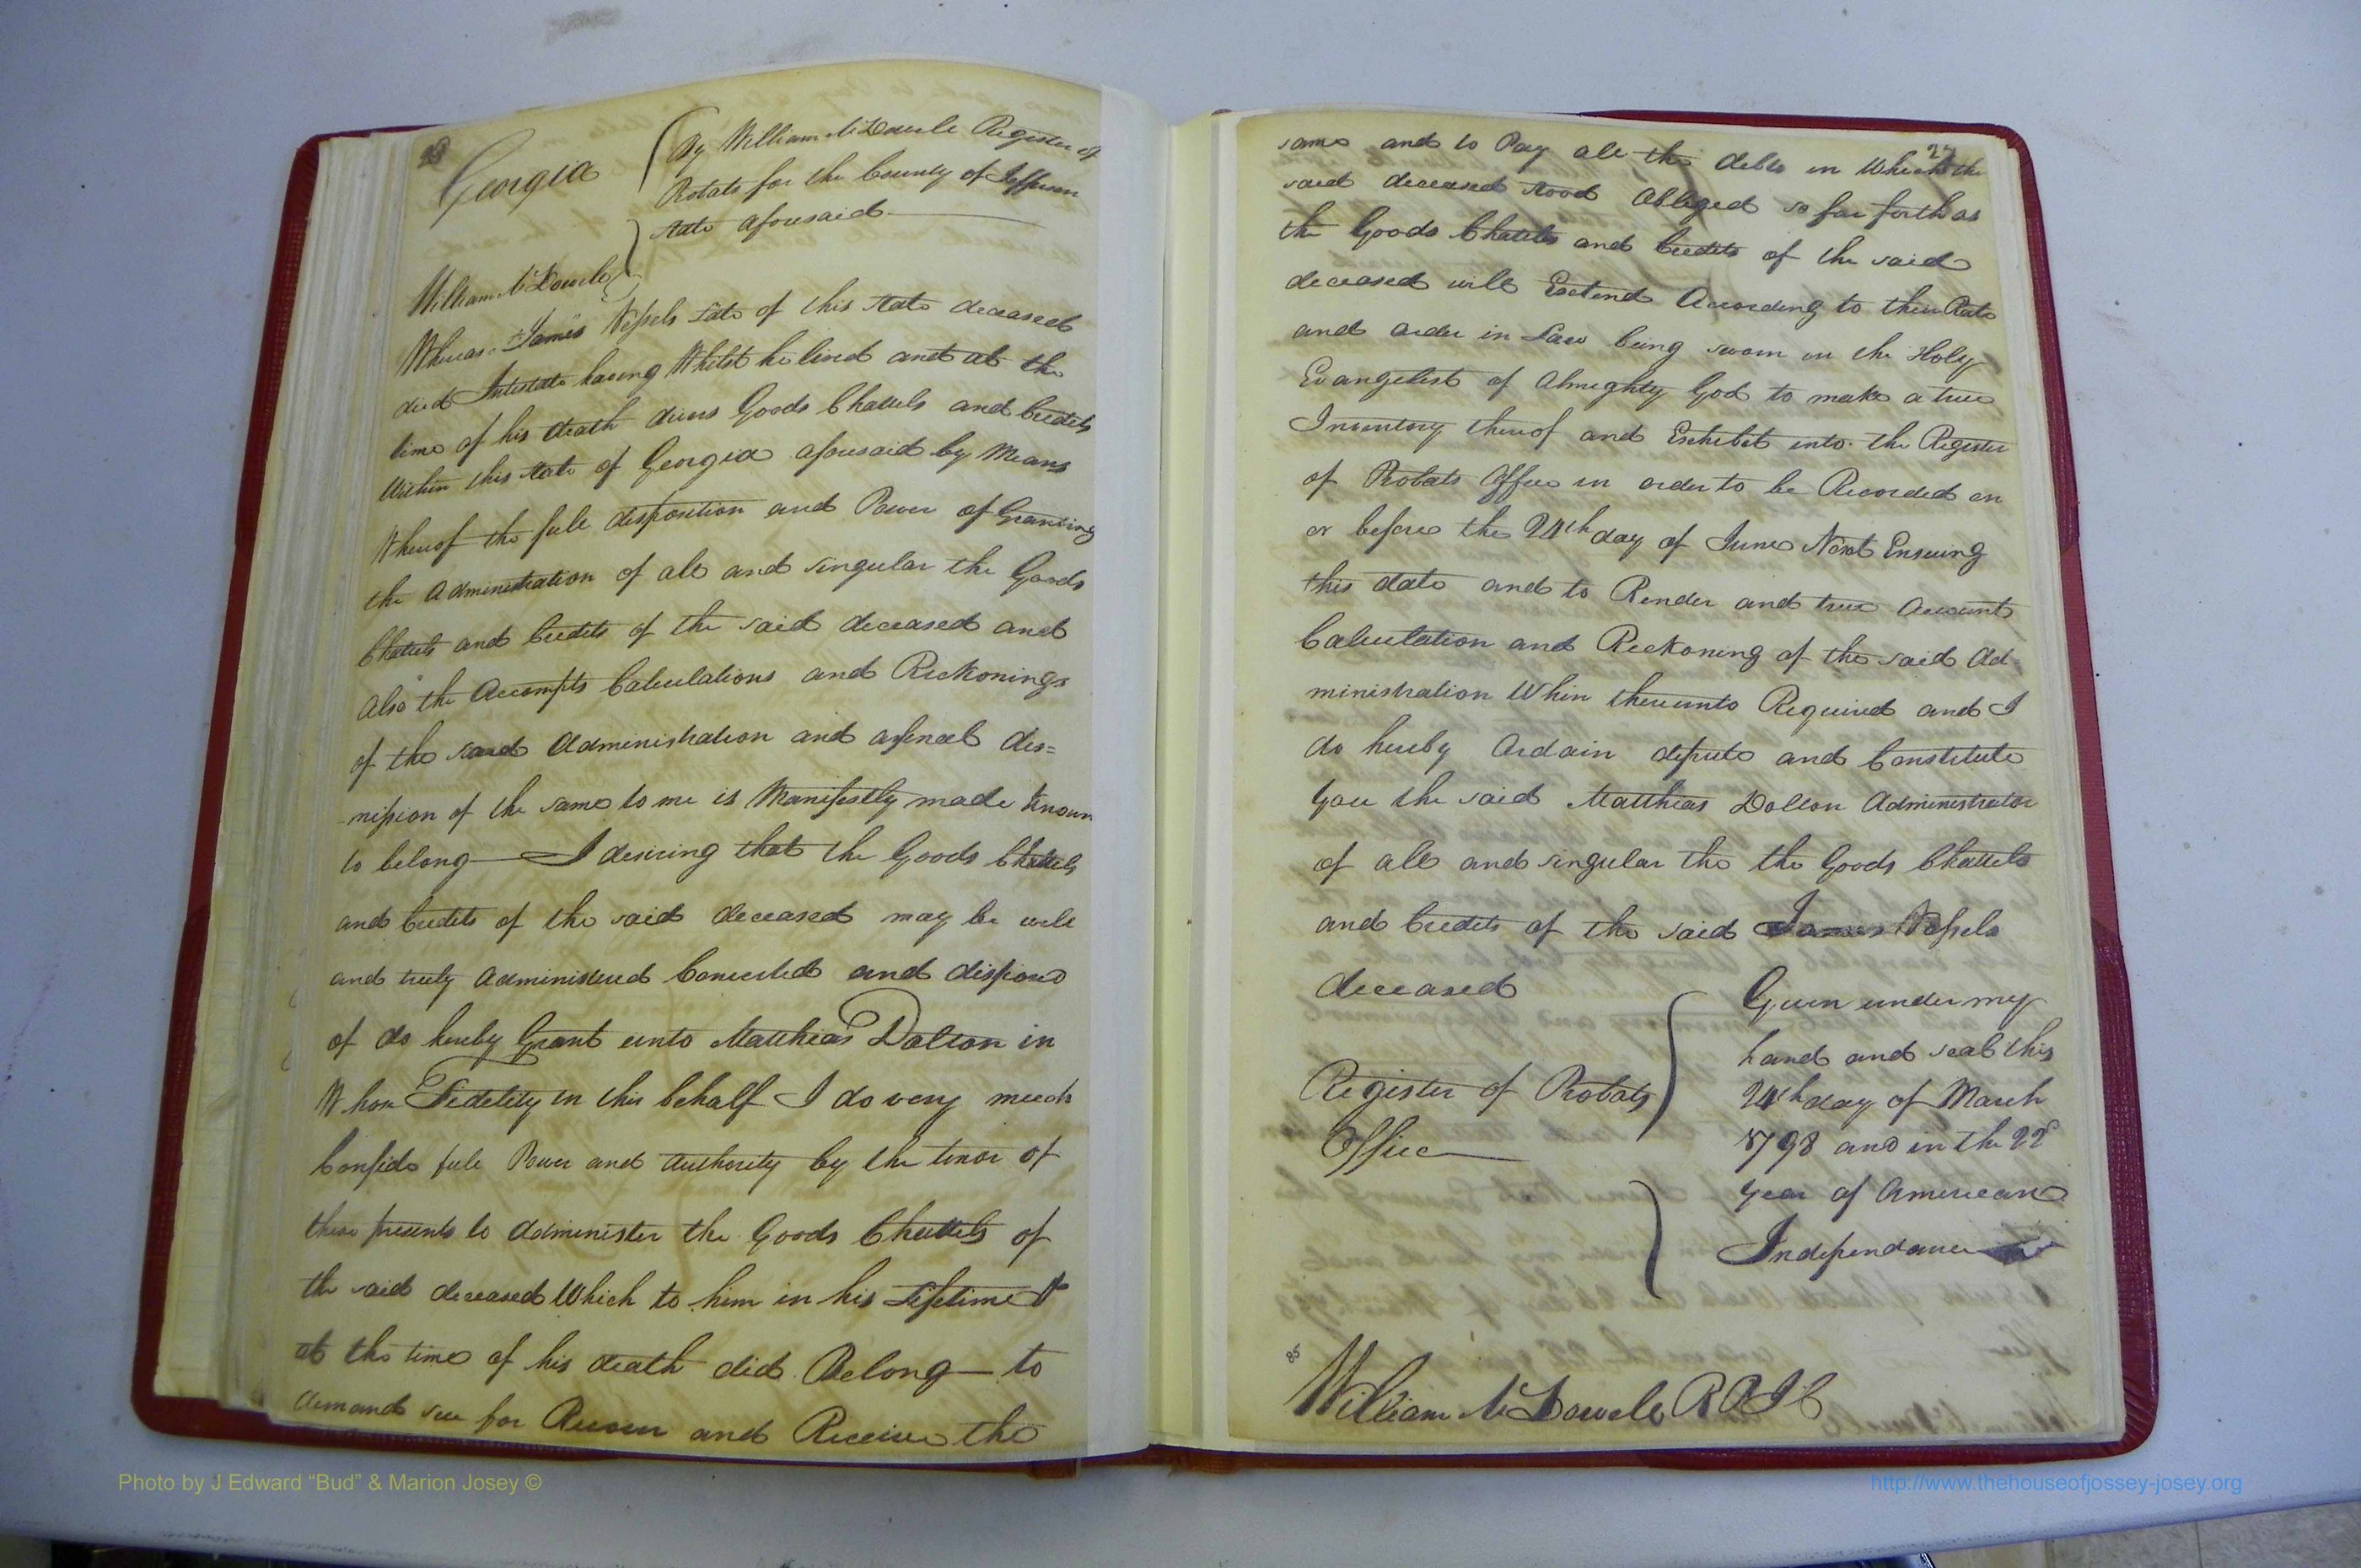 28
Georgia
By William McDowell Register of
Probats for the County of Jefferson
State aforesaid
William McDowell
Whereas James Vessels Late of this State deceased
died Intestate having Whilst he lived and at the
time of his death divers Goods Chattels and Credits
Within this State of Georgia aforesaid by Means
Whereof the full disposition and Power of Granting
the Administration of all and singular the Goods
Chattels and Credits of the said deceased and
Also the Accompts Calculations and Reckonings
of the said Administration and a final dis=
mission of the same to me is Manifestly made known
to belong I desiring that the Goods Chattels
and Credits of the said deceased may be well
and truly Administered Converted and disposed
of do hereby Grant unto Matthias Dolton in
Whom Fidelity in this behalf I do very much
Confide full Power and Authority by the tenor of
these presents to Administer the Goods Chattels of
the said deceased Which to him in his Lifetime &
at the time of his death did Belong to
demand sue for Recover and Receive the
same and to Pay all the debts in Which the
said deceased stood Obliged so far forth as
the Goods Chattels and Credits of the said
deceased will Extend According to their Rate
and order in Law being sworn on the Holy
Evangelist of Almighty God to make a true
Inventory thereof and Exhibet into the Register
of Probats Office in order to be Recorded on
or before the 24th day of June Next Ensuing
this date and to Render and true Account
Calculation and Reckoning of the said Ad=
ministration When thereunto Required and I
do hereby Ordain depute and Constitute
You the said Matthias Dolton Administrator
of all and singular the the Goods Chattels
and Credits of the said James Vessels
deceased
Given under my
hand and seal this
24th day of March
1798 and in the 22d
Year of American
Independance
Register of Probats
Office
85
William McDowell R P J C
Photo by J Edward “Bud” & Marion Josey ©
http://www.thehouseofjossey-josey.org